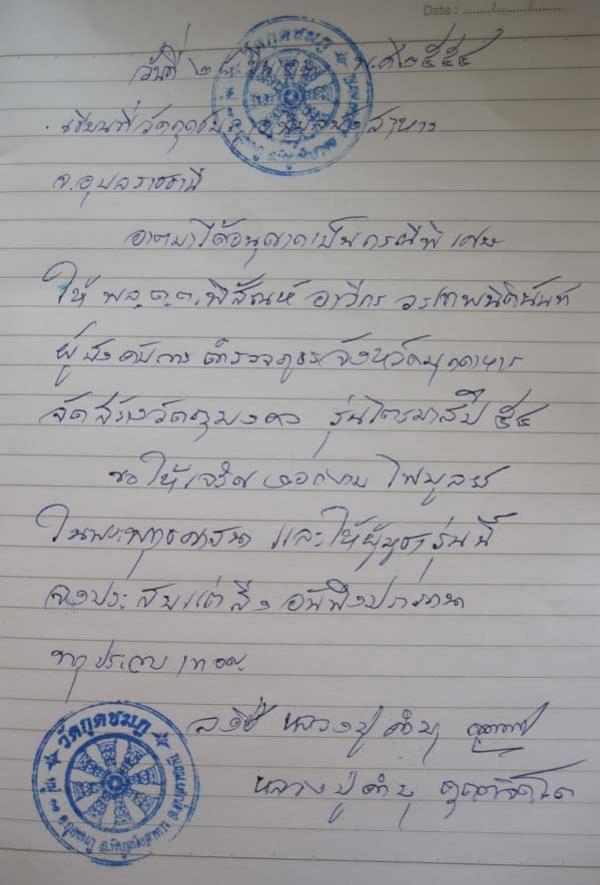 Date : ......../......../........
วันที่ ๒๕ พ.ศ ๒๕๕๔
เขียนที่วัดกุดชมภู อ.พิบูลมังสาหาร
จ.อุบลราชธานี
อาตมาได้อนุญาตเป็นกรณีพิเศษ
ให้ พล.ต.ต. อาวีกร วรเทพนิตินันท์
ผู้บังคับการ ตำรวจภูธรจังหวัดมุกดาหาร
จัดสร้างวัตถุมงคล รุ่นไตรมาสปี ๕๔
ขอให้เจริญงอกงาม ไพบูลย์
ในพระพุทธศาสนา และให้ผู้บูชารุ่นนี้
จงประสบแต่สิ่งอันพึงปรารถนา
ทุกประการ เทอญ
ลงชื่อ หลวงปู่คำบุ
หลวงปู่คำบุ คุตฺตจิตฺโต
วัดกุดชมภู